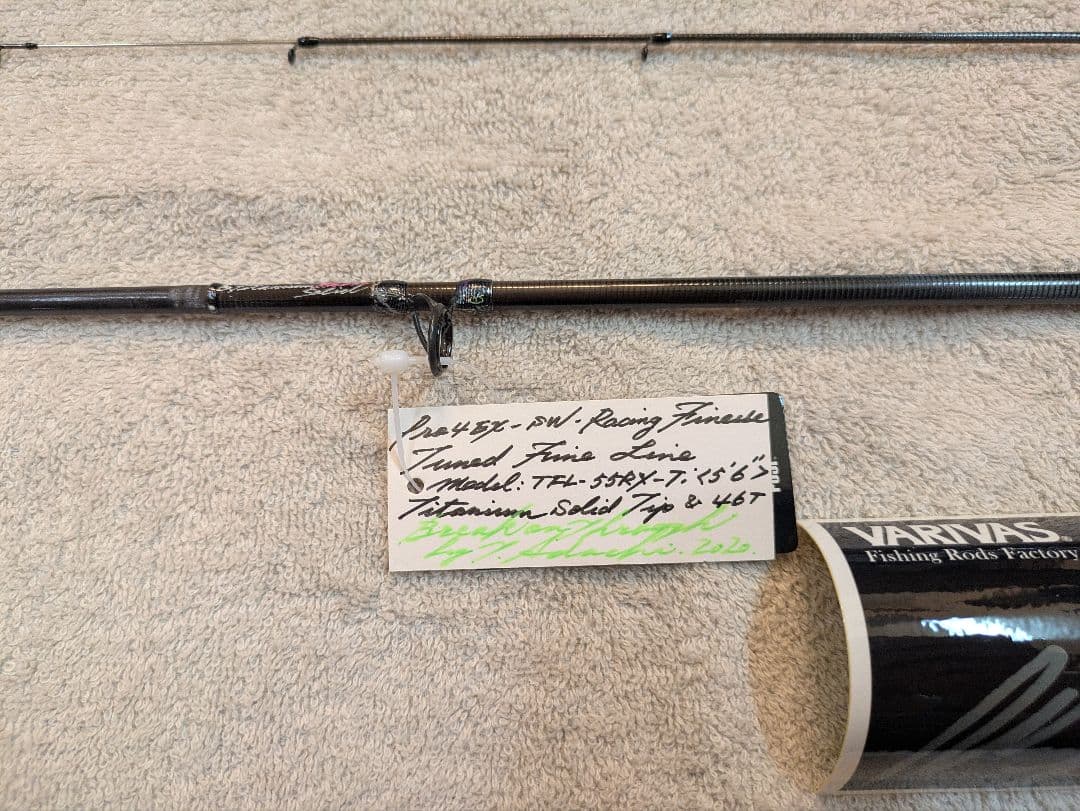 Titanium Soul
Pro4EX-SW-Racing Finesse
Tuned Fine Line
Model: TFL-55RX-Ti <5'6">
Titanium Solid Tip & 46T
Break on Through
by T. Adachi. 2020.
VARIVAS.
Fishing Rods Factory